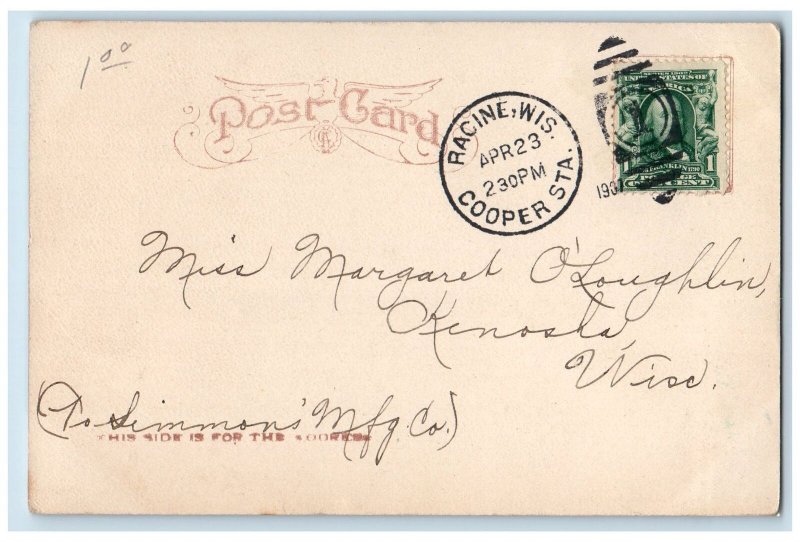 1 00
Post Card
RACINE, WIS.
APR 23
2 30 PM
COOPER STA.
1907
SERIES 1902
UNITED STATES OF
AMERICA
FRANKLIN
1 1
POSTAGE
ONE CENT
Miss Margaret O'Loughlin,
Kenosha,
Wisc.
(To Simmons' Mfg. Co.)
THIS SIDE IS FOR THE ADDRESS